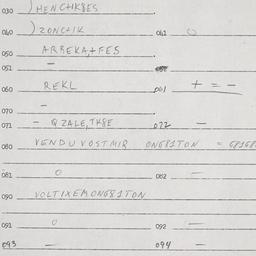 030 ) HENCHKBES
040 ) ZONCHIK 041 0
050 ARREKA,+FES
051 —
060 REKL 061 + = -
070 -
071 - QZALE,TKBE 072 —
080 VENDUVOSTMIR ON681TON = 68168
081 0 082 —
090 VOLTIXEMON681TON
091 0 092 —
093 — 094 —